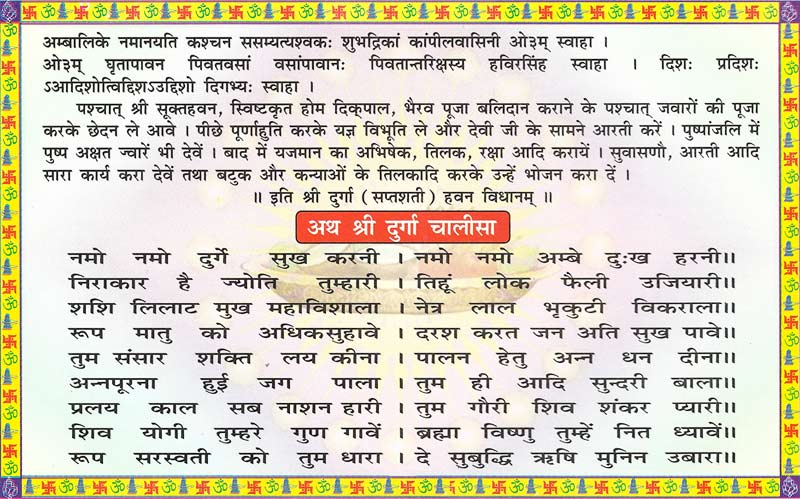 अम्बालिके नमानयति कश्चन ससम्यत्यश्वकः शुभद्रिकां कांपीलवासिनी ओ३म् स्वाहा ।
ओ३म् घृतापावन पिवतवसां वसांपावानः पिवतान्तरिक्षस्य हविरसिंह स्वाहा । दिशः प्रदिशः
ऽआदिशोत्विद्दिशऽउद्दिशो दिगभ्यः स्वाहा ।
पश्चात् श्री सूक्तहवन, स्विष्टकृत होम दिक्पाल, भैरव पूजा बलिदान कराने के पश्चात् जवारों की पूजा
करके छेदन ले आवे । पीछे पूर्णाहुति करके यज्ञ विभूति ले और देवी जी के सामने आरती करें । पुष्पांजलि में
पुष्प अक्षत ज्वारें भी देवें । बाद में यजमान का अभिषेक, तिलक, रक्षा आदि करायें । सुवासणौ, आरती आदि
सारा कार्य करा देवें तथा बटुक और कन्याओं के तिलकादि करके उन्हें भोजन करा दें ।
॥ इति श्री दुर्गा (सप्तशती) हवन विधानम् ॥
अथ श्री दुर्गा चालीसा
नमो नमो दुर्गे सुख करनी । नमो नमो अम्बे दुःख हरनी॥
निराकार है ज्योति तुम्हारी । तिहूं लोक फैली उजियारी॥
शशि लिलाट मुख महाविशाला । नेत्र लाल भृकुटी विकराला॥
रूप मातु को अधिकसुहावे । दरश करत जन अति सुख पावे॥
तुम संसार शक्ति लय कीना । पालन हेतु अन्न धन दीना॥
अन्नपूरना हुई जग पाला । तुम ही आदि सुन्दरी बाला॥
प्रलय काल सब नाशन हारी । तुम गौरी शिव शंकर प्यारी॥
शिव योगी तुम्हरे गुण गावें । ब्रह्मा विष्णु तुम्हें नित ध्यावें॥
रूप सरस्वती को तुम धारा । दे सुबुद्धि ऋषि मुनिन उबारा॥